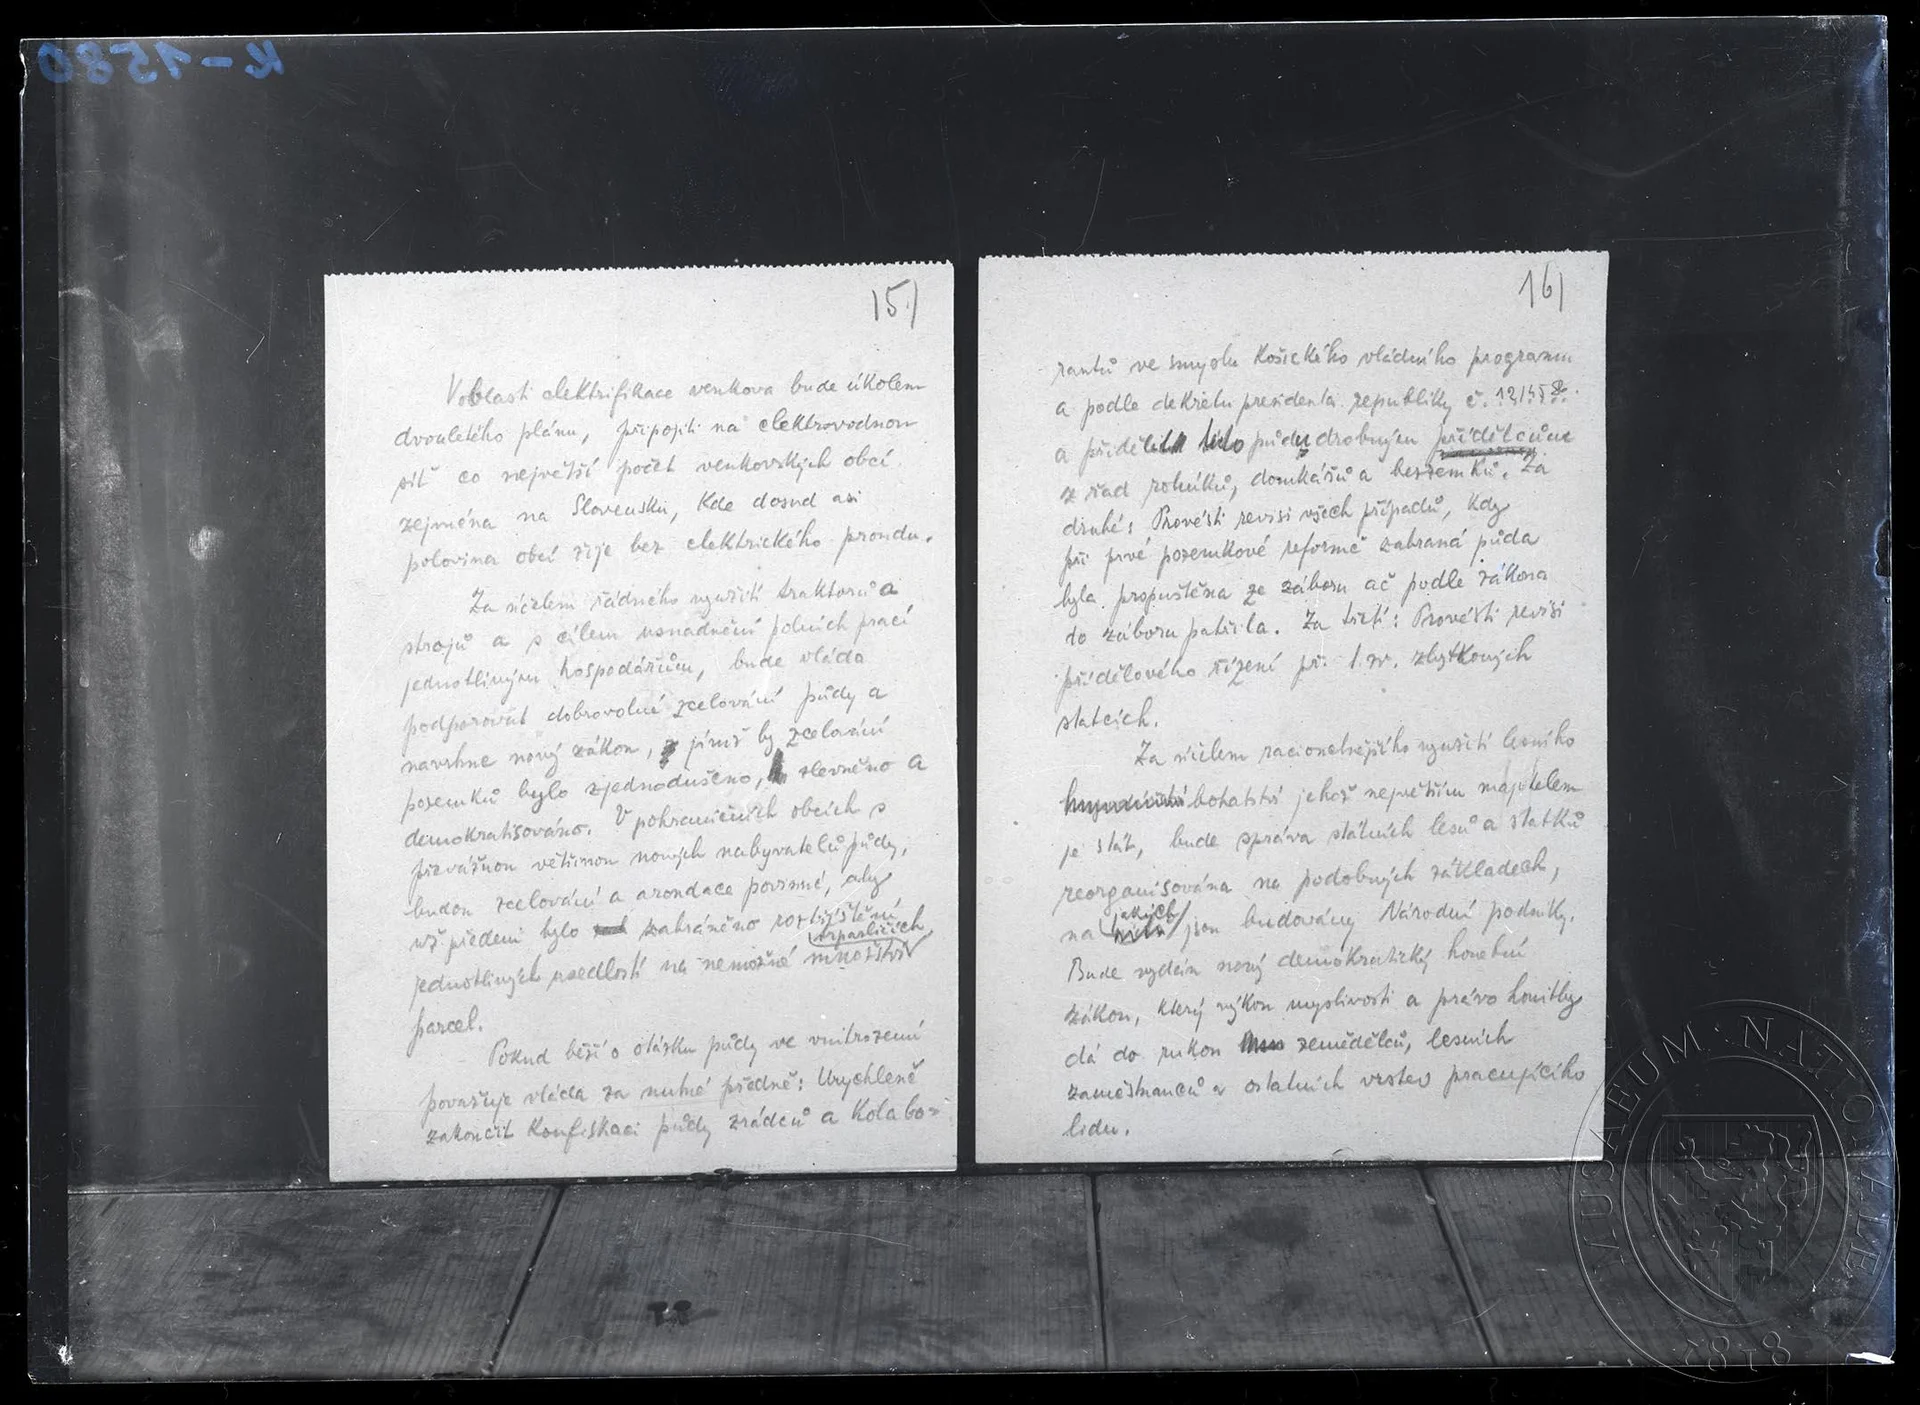 K-1580
15/
V oblasti elektrifikace venkova bude úkolem
dvouletého plánu, připojiti na elektrovodnou
síť co největší počet venkovských obcí
zejména na Slovensku, kde dosud asi
polovina obcí žije bez elektrického proudu.
Za účelem řádného využití traktorů a
strojů a s cílem usnadnění polních prací
jednotlivým hospodářům, bude vláda
podporovat dobrovolné zcelování půdy a
navrhne nový zákon, jímž by zcelování
pozemků bylo zjednodušeno, zlevněno a
demokratisováno. V pohraničních obcích s
převážnou většinou nových nabyvatelů půdy,
budou zcelování a arondace povinné, aby
už předem bylo zabráněno roztříštění
jednotlivých usedlostí na nemožné množství
parcel.
Pokud běží o otázku půdy ve vnitrozemí
považuje vláda za nutné předně: Urychleně
zakončit konfiskaci půdy zrádců a kolabo=
16/
rantů ve smyslu Košického vládního programu
a podle dekretu presidenta republiky č. 12/45
a přidělit tuto půdu drobným přídělcům
z řad rolníků, domkářů a bezzemků. Za
druhé: Provésti revisi všech případů, kdy
při prvé pozemkové reformě zabraná půda
byla propuštěna ze záboru ač podle zákona
do záboru patřila. Za třetí: Provésti revisi
přídělového řízení při t. zv. zbytkových
statcích.
Za účelem racionelnějšího využití lesního
bohatství jehož největším majitelem
je stát, bude správa státních lesů a statků
reorganisována na podobných základech,
na jakých jsou budovány Národní podniky.
Bude vydán nový demokratický honební
zákon, který výkon myslivosti a právo honitby
dá do rukou zemědělců, lesních
zaměstnanců a ostatních vrstev pracujícího
lidu.
MUSAEUM NATIONALE
1818